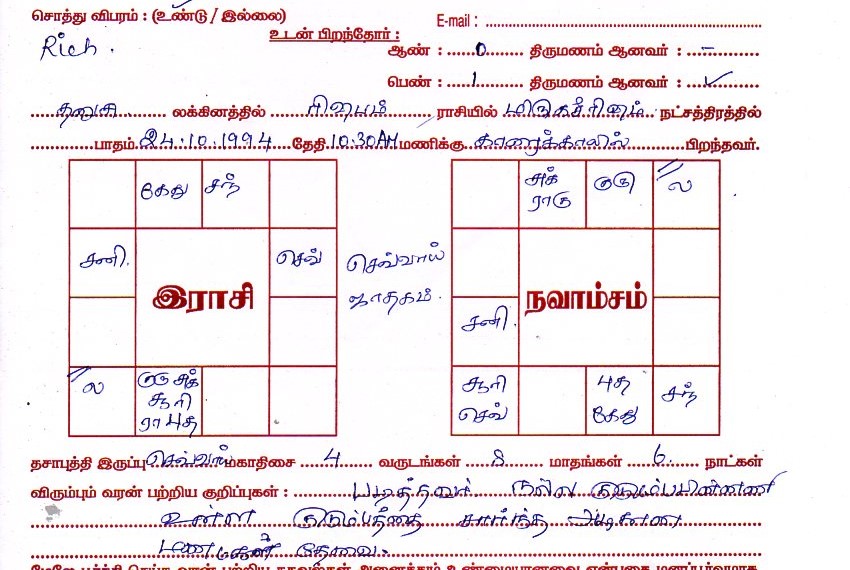 சொத்து விபரம் : (உண்டு / இல்லை)
E-mail :
Rich.
உடன் பிறந்தோர் :
ஆண் : 0 திருமணம் ஆனவர் : –
பெண் : 1 திருமணம் ஆனவர் : ✓
தனுசு லக்கினத்தில் ரிஷபம் ராசியில் மிருகசீரிஷம் நட்சத்திரத்தில்
பாதம் 24.10.1994 தேதி 10.30AM மணிக்கு காரைக்காலில் பிறந்தவர்.
கேது சந்
சனி. செவ்
இராசி
ல குரு சுக் சூரி ரா புத
செவ்வாய்
ஜாதகம்.
சுக் ராகு குரு ல
நவாம்சம்
சனி.
சூரி செவ் புத கேது சந்
தசாபுத்தி இருப்பு செவ்வாய் மகாதிசை 4 வருடங்கள் 8 மாதங்கள் 6 நாட்கள்
விரும்பும் வரன் பற்றிய குறிப்புகள் : படித்தவர் நல்ல
உள்ள குடும்பத்தை சார்ந்த
மணமகன் தேவை.